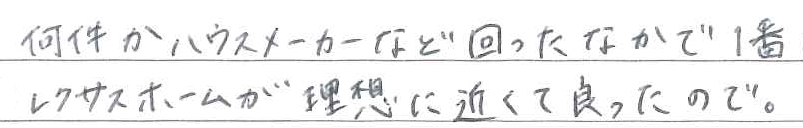 何件かハウスメーカーなど回ったなかで1番
レクサスホームが理想に近くて良ったので。